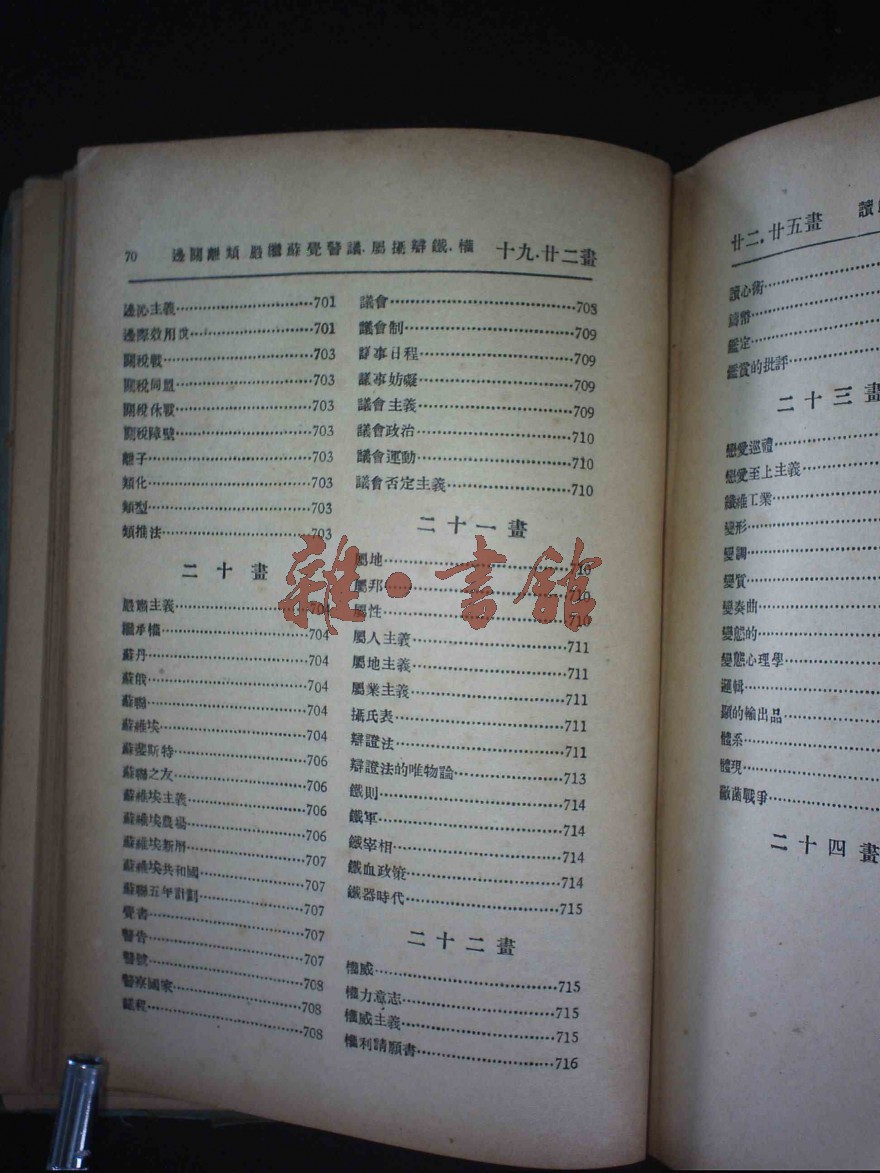 70 邊關離類 嚴繼蘇覺警議.屬攝辯鐵.權 十九.廿二畫
邊沁主義 701
邊際效用說 701
關稅戰 703
關稅同盟 703
關稅休戰 703
關稅障壁 703
離子 703
類化 703
類型 703
類推法 703
二十畫
嚴肅主義 704
繼承權 704
蘇丹 704
蘇俄 704
蘇聯 704
蘇維埃 704
蘇斐斯特 706
蘇聯之友 706
蘇維埃主義 706
蘇維埃農場 706
蘇維埃新曆 707
蘇維埃共和國 707
蘇聯五年計劃 707
覺書 707
警告 707
警號 708
警察國家 708
708
議會 708
議會制 709
議事日程 709
議事妨礙 709
議會主義 709
議會政治 710
議會運動 710
議會否定主義 710
二十一畫
屬地 710
屬邦 710
屬性 710
屬人主義 711
屬地主義 711
屬業主義 711
攝氏表 711
辯證法 711
辯證法的唯物論 713
鐵則 714
鐵軍 714
鐵宰相 714
鐵血政策 714
鐵器時代 715
二十二畫
權威 715
權力意志 715
權威主義 715
權利請願書 716
雜·書館
廿二.廿五畫 讀
讀心術
鑄幣
鑑定
鑑賞的批評
二十三畫
戀愛巡禮
戀愛至上主義
纖維工業
變形
變調
變質
變奏曲
變態的
變態心理學
邏輯
顯的輸出品
體系
體現
黴菌戰爭
二十四畫